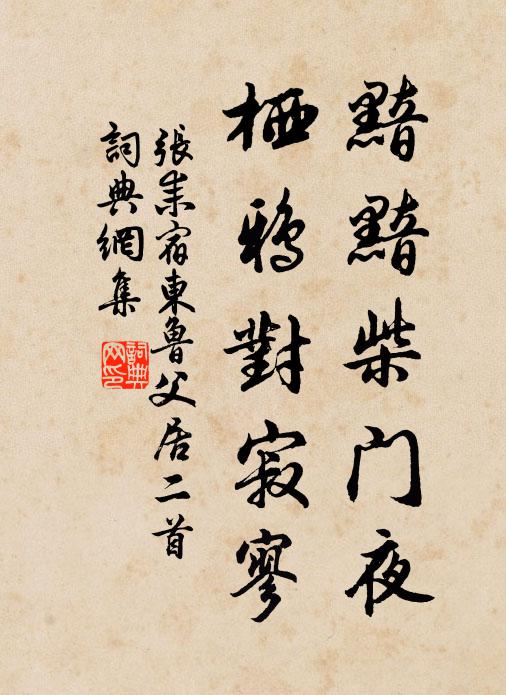 黯黯柴门夜
栖鴉對寂寥
張耒宿東魯父居二首
詞典網集
詞典
网印